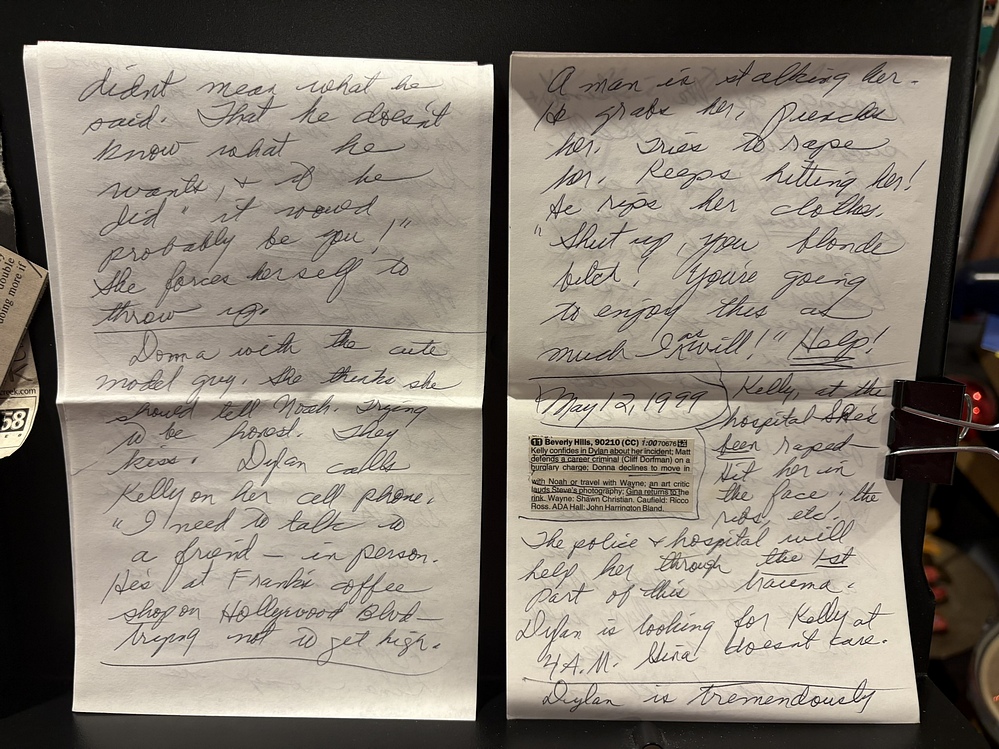 didnt mean what he
said. That he doesn't
know what he
wants, & if he
did "it would
probably be you!"
She forces herself to
throw up.
Donna with the cute
model guy. She thinks she
should tell Noah. Trying
to be honest. They
kiss. Dylan calls
Kelly on her cell phone.
"I need to talk to
a friend – in person.
Hes at Franks coffee
shop on Hollywood Blvd –
trying not to get high.
A man is stalking her.
He grabs her, punches
her. Tries to rape
her. Keeps hitting her!
He rips her clothes.
"Shut up, you blonde
bitch! You're going
to enjoy this as
much as I will!" Help!
May 12, 1999
11 Beverly Hills, 90210 (CC) 1:00 70676
Kelly confides in Dylan about her incident; Matt
defends a career criminal (Cliff Dorfman) on a
burglary charge; Donna declines to move in
with Noah or travel with Wayne; an art critic
lauds Steve's photography; Gina returns to the
rink. Wayne: Shawn Christian. Caufield: Ricco
Ross. ADA Hall: John Harrington Bland.
Kelly, at the
hospital Shes
been raped –
Hit her in
the face, the
ribs, etc.
The police & hospital will
help her through the 1st
part of this trauma.
Dylan is looking for Kelly at
4 A.M. Gina doesnt care.
Dylan is tremendously
double
doing more if
eek.com
58